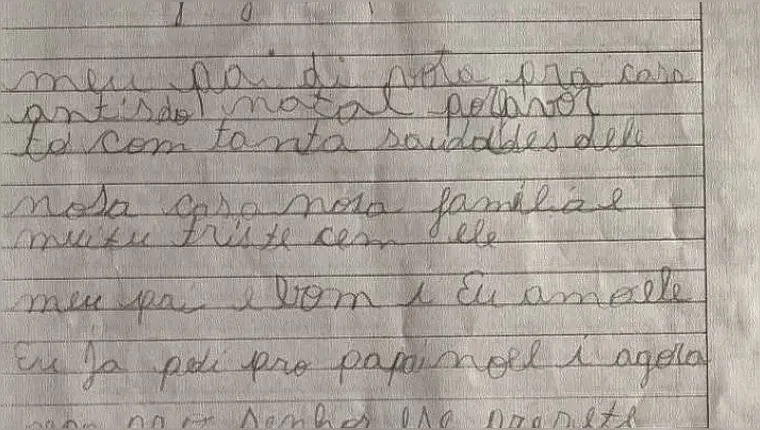 meu pai di vota pra casa
antis do natal porfavor
to com tanta saudaldes dele
nosa casa nosa familia e
muitu triste cem ele
meu pai e bom i Eu amo ele
Eu ja pedi pro papai noel i agora